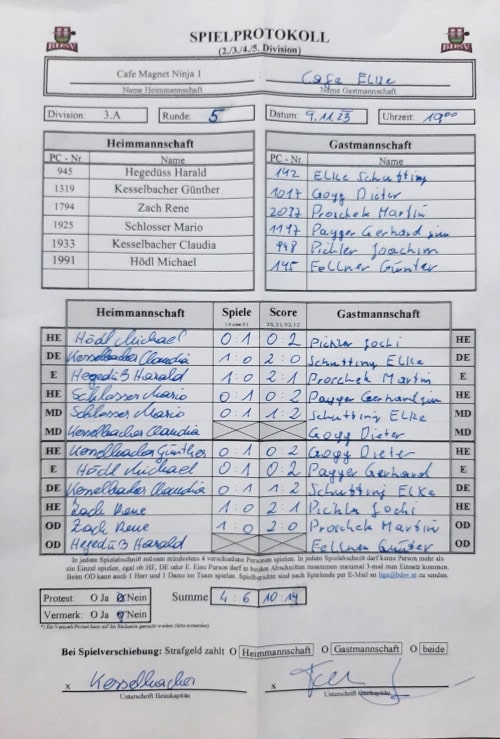 BDSV SPIELPROTOKOLL BDSV
(2./3./4./5. Division)
Cafe Magnet Ninja 1 Cafe Elke
Name Heimmannschaft Name Gastmannschaft
Division: 3.A Runde: 5 Datum: 9.11.23 Uhrzeit: 19⁰⁰
Heimmannschaft Gastmannschaft
PC - Nr. Name PC - Nr. Name
945 Hegedüss Harald 142 Elke Schutting
1319 Kesselbacher Günther 1017 Gogg Dieter
1794 Zach Rene 2037 Proschek Martin
1925 Schlosser Mario 1197 Payger Gerhard jun
1933 Kesselbacher Claudia 948 Pichler Joachim
1991 Hödl Michael 145 Fellner Günter
Heimmannschaft Spiele Score Gastmannschaft
HE Hödl Michael 0 : 1 0 : 2 Pichler Jochi HE
DE Kesselbacher Claudia 1 : 0 2 : 0 Schutting Elke DE
E Hegedüß Harald 1 : 0 2 : 1 Proschek Martin E
HE Schlosser Mario 0 : 1 0 : 2 Payger Gerhard jun HE
MD Schlosser Mario 0 : 1 1 : 2 Schutting Elke MD
MD Kesselbacher Claudia Gogg Dieter MD
HE Kesselbacher Günther 0 : 1 0 : 2 Gogg Dieter HE
E Hödl Michael 0 : 1 0 : 2 Payger Gerhard E
DE Kesselbacher Claudia 0 : 1 1 : 2 Schutting Elke DE
HE Zach Rene 1 : 0 2 : 1 Pichler Jochi HE
OD Zach Rene 1 : 0 2 : 0 Proschek Martin OD
OD Hegedüß Harald Fellner Günter OD
In jedem Spielabschnitt müssen mindestens 4 verschiedene Personen spielen. In jedem Spielabschnitt darf keine Person mehr als
ein Einzel spielen, egal ob HE, DE oder E. Eine Person darf in beiden Abschnitten zusammen maximal 3-mal zum Einsatz kommen.
Beim OD kann auch 1 Herr und 1 Dame im Team spielen. Spielberichte sind nach Spielende per E-Mail an zu senden.
Protest: O Ja O Nein Summe 4 : 6 10 : 14
Vermerk: O Ja O Nein
Bei Spielverschiebung: Strafgeld zahlt O Heimmannschaft O Gastmannschaft O beide
x Kesselbacher x
Unterschrift Heimkapitän Unterschrift Gastkapitän